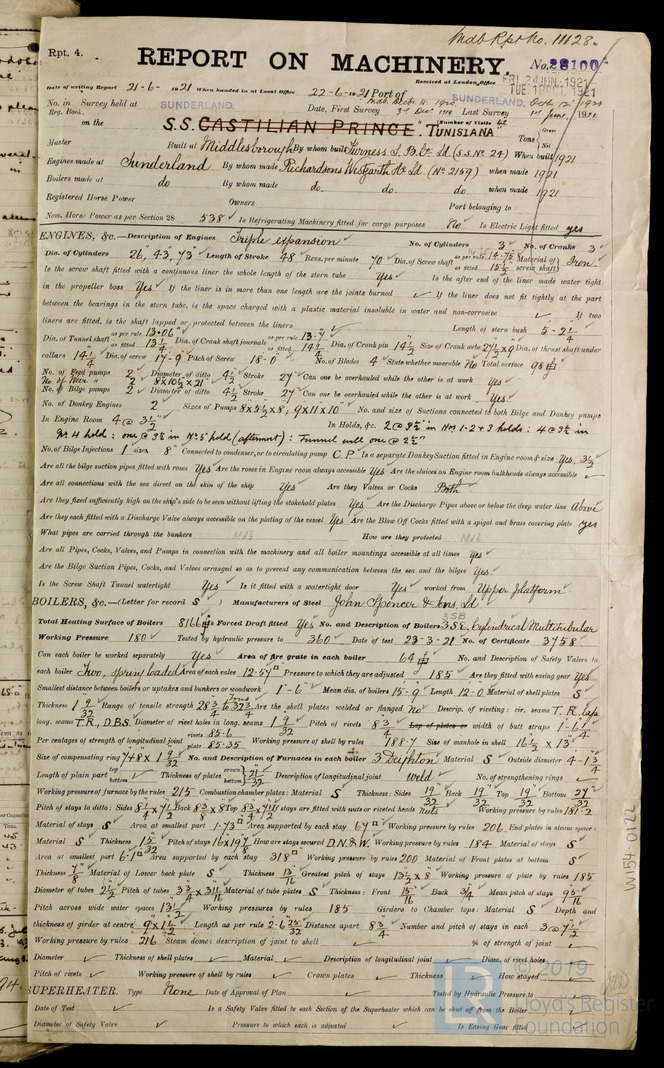 Mdb Rpt No. 11128.
Rpt. 4.
REPORT ON MACHINERY.
No. 28100
FRI. 24 JUN. 1921
Date of writing Report 21-6-1921 When handed in at Local Office 22-6-1921 Port of SUNDERLAND.
Received at London Office TUE. 1921
No. in Survey held at SUNDERLAND. Date, First Survey 3rd Dec. 1919 Last Survey 1st June, 1921
Reg. Book.
on the S.S. CASTILIAN PRINCE "TUNISIANA" (Number of Visits
Master Built at Middlesbrough By whom built Furness S. B. Co Ld (S.S. No 24) When built 1921
Tons Gross Net
Engines made at Sunderland By whom made Richardsons Westgarth & Co Ld (No 2159) when made 1921
Boilers made at do By whom made do. do. do. when made 1921
Registered Horse Power Owners Port belonging to
Nom. Horse Power as per Section 28 538 Is Refrigerating Machinery fitted for cargo purposes No Is Electric Light fitted yes
ENGINES, &c.—Description of Engines Triple expansion No. of Cylinders 3 No. of Cranks 3
Dia. of Cylinders 26", 43", 73" Length of Stroke 48" Revs. per minute 70 Dia. of Screw shaft as per rule 14.75 as fitted 15½ Material of screw shaft Iron
Is the screw shaft fitted with a continuous liner the whole length of the stern tube Yes Is the after end of the liner made water tight
in the propeller boss Yes If the liner is in more than one length are the joints burned If the liner does not fit tightly at the part
between the bearings in the stern tube, is the space charged with a plastic material insoluble in water and non-corrosive If two
liners are fitted, is the shaft lapped or protected between the liners Length of stern bush 5-2¼
Dia. of Tunnel shaft as per rule 13.06 as fitted 13¼ Dia. of Crank shaft journals as per rule 13.7 as fitted 14¼ Dia. of Crank pin 14½ Size of Crank webs 27½ x 9 Dia. of thrust shaft under
collars 14¼ Dia. of screw 17-9 Pitch of Screw 18-0 No. of Blades 4 State whether moveable No Total surface 98
No. of Feed pumps 2 Diameter of ditto 4½ Stroke 27" Can one be overhauled while the other is at work Yes
No. of Bilge pumps 2 Diameter of ditto 4½ Stroke 27" Can one be overhauled while the other is at work Yes
No. of Donkey Engines 2 Sizes of Pumps 8x5½x8", 9x11x10" No. and size of Suctions connected to both Bilge and Donkey pumps
In Engine Room 4 @ 3½" In Holds, &c. 2 @ 3½" in Nos 1. 2 & 3 holds: 4 @ 3½ in
No 4 hold: one @ 3½ in No 5 hold (aftermost): Tunnel well one @ 2½"
No. of Bilge Injections 1 sizes 8" Connected to condenser, or to circulating pump C.P. Is a separate Donkey Suction fitted in Engine room & size Yes, 3½
Are all the bilge suction pipes fitted with roses Yes Are the roses in Engine room always accessible Yes Are the sluices on Engine room bulkheads always accessible
Are all connections with the sea direct on the skin of the ship Yes Are they Valves or Cocks Both
Are they fixed sufficiently high on the ship's side to be seen without lifting the stokehold plates Yes Are the Discharge Pipes above or below the deep water line above
Are they each fitted with a Discharge Valve always accessible on the plating of the vessel Yes Are the Blow Off Cocks fitted with a spigot and brass covering plate yes
What pipes are carried through the bunkers Mdb How are they protected Mdb
Are all Pipes, Cocks, Valves, and Pumps in connection with the machinery and all boiler mountings accessible at all times Yes
Are the Bilge Suction Pipes, Cocks, and Valves arranged so as to prevent any communication between the sea and the bilges Yes.
Is the Screw Shaft Tunnel watertight Yes Is it fitted with a watertight door Yes worked from Upper platform
BOILERS, &c.—(Letter for record S ) Manufacturers of Steel John Spencer & Sons, Ld
Total Heating Surface of Boilers 8166 Is Forced Draft fitted Yes No. and Description of Boilers 3 S.E. Cylindrical Multitubular
Working Pressure 180 Tested by hydraulic pressure to 360 Date of test 23-3-21 No. of Certificate 3758
Can each boiler be worked separately Yes Area of fire grate in each boiler 64 No. and Description of Safety Valves to
each boiler Two, spring loaded Area of each valve 12.57 Pressure to which they are adjusted 185 Are they fitted with easing gear Yes
Smallest distance between boilers or uptakes and bunkers or woodwork 1'-6" Mean dia. of boilers 15-9 Length 12-0 Material of shell plates S
Thickness 1 9/32 Range of tensile strength 28¾ to 32¾ Are the shell plates welded or flanged no Descrip. of riveting: cir. seams T.R. Lap
long. seams T.R, D.B.S. Diameter of rivet holes in long. seams 1 9/32 Pitch of rivets 8¾ Lap of plates or width of butt straps
Per centages of strength of longitudinal joint rivets 85.6 plate 85.35 Working pressure of shell by rules 188.7 Size of manhole in shell 16½ x 13
Size of compensating ring 7 x 8 x 1 9/32 No. and Description of Furnaces in each boiler 3 Deighton Material S Outside diameter 4-1¾
Length of plain part top bottom Thickness of plates crown bottom 21/32 Description of longitudinal joint weld No. of strengthening rings
Working pressure of furnace by the rules 215 Combustion chamber plates: Material S Thickness: Sides 19/32 Back 19/32 Top 19/32 Bottom 27/32
Pitch of stays to ditto: Sides Back Top If stays are fitted with nuts or riveted heads Nuts Working pressure by rules 181.2
Material of stays S Area at smallest part 1.73 Area supported by each stay 67 Working pressure by rules 206 End plates in steam space:
Material S Thickness 15/32 Pitch of stays 16x19⅞ How are stays secured D.N.&W. Working pressure by rules 184 Material of stays S
Area at smallest part 6.1 Area supported by each stay 318 Working pressure by rules 200 Material of Front plates at bottom S
Thickness ⅞ Material of Lower back plate S Thickness 13/16 Greatest pitch of stays 13½ x 8 Working pressure of plate by rules 185
Diameter of tubes 2½ Pitch of tubes 3¾ x 3 11/16 Material of tube plates S Thickness: Front 15/16 Back ¾ Mean pitch of stays 9 5/16
Pitch across wide water spaces 13½ Working pressures by rules 185 Girders to Chamber tops: Material S Depth and
thickness of girder at centre 9 x 1½ Length as per rule 2-6 25/32 Distance apart 8¾ Number and pitch of stays in each 3 @ 7½
Working pressure by rules 216 Steam dome: description of joint to shell % of strength of joint
Diameter Thickness of shell plates Material Description of longitudinal joint Diam. of rivet holes
Pitch of rivets Working pressure of shell by rules Crown plates Thickness How stayed
SUPERHEATER. Type None Date of Approval of Plan Tested by Hydraulic Pressure to
Date of Test Is a Safety Valve fitted to each Section of the Superheater which can be shut off from the Boiler
Diameter of Safety Valve Pressure to which each is adjusted Is Easing Gear fitted
W154-0122
LR
© 2019
Lloyd's Register
Foundation